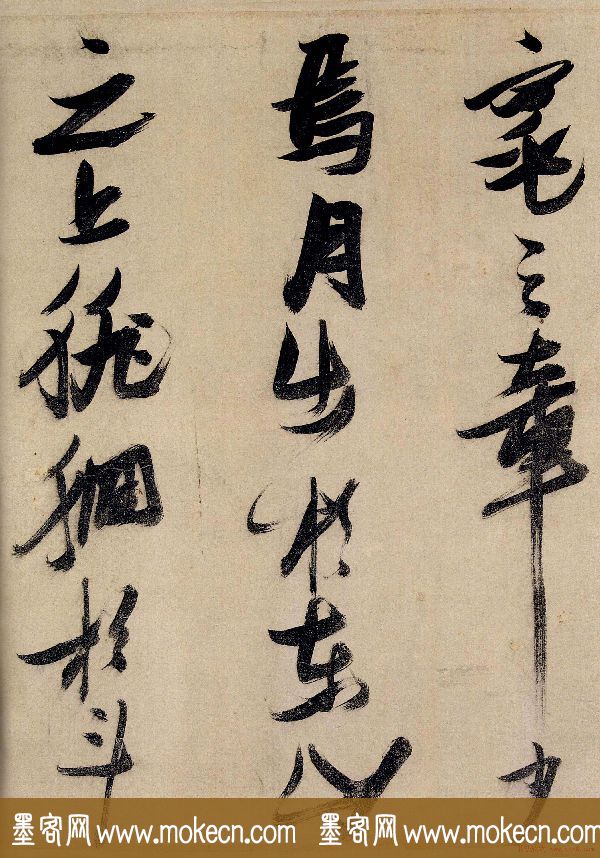 窕之章少
焉月出於東山
之上徘徊於斗
墨客网 www.mokecn.com 墨客网 www.mokecn.com